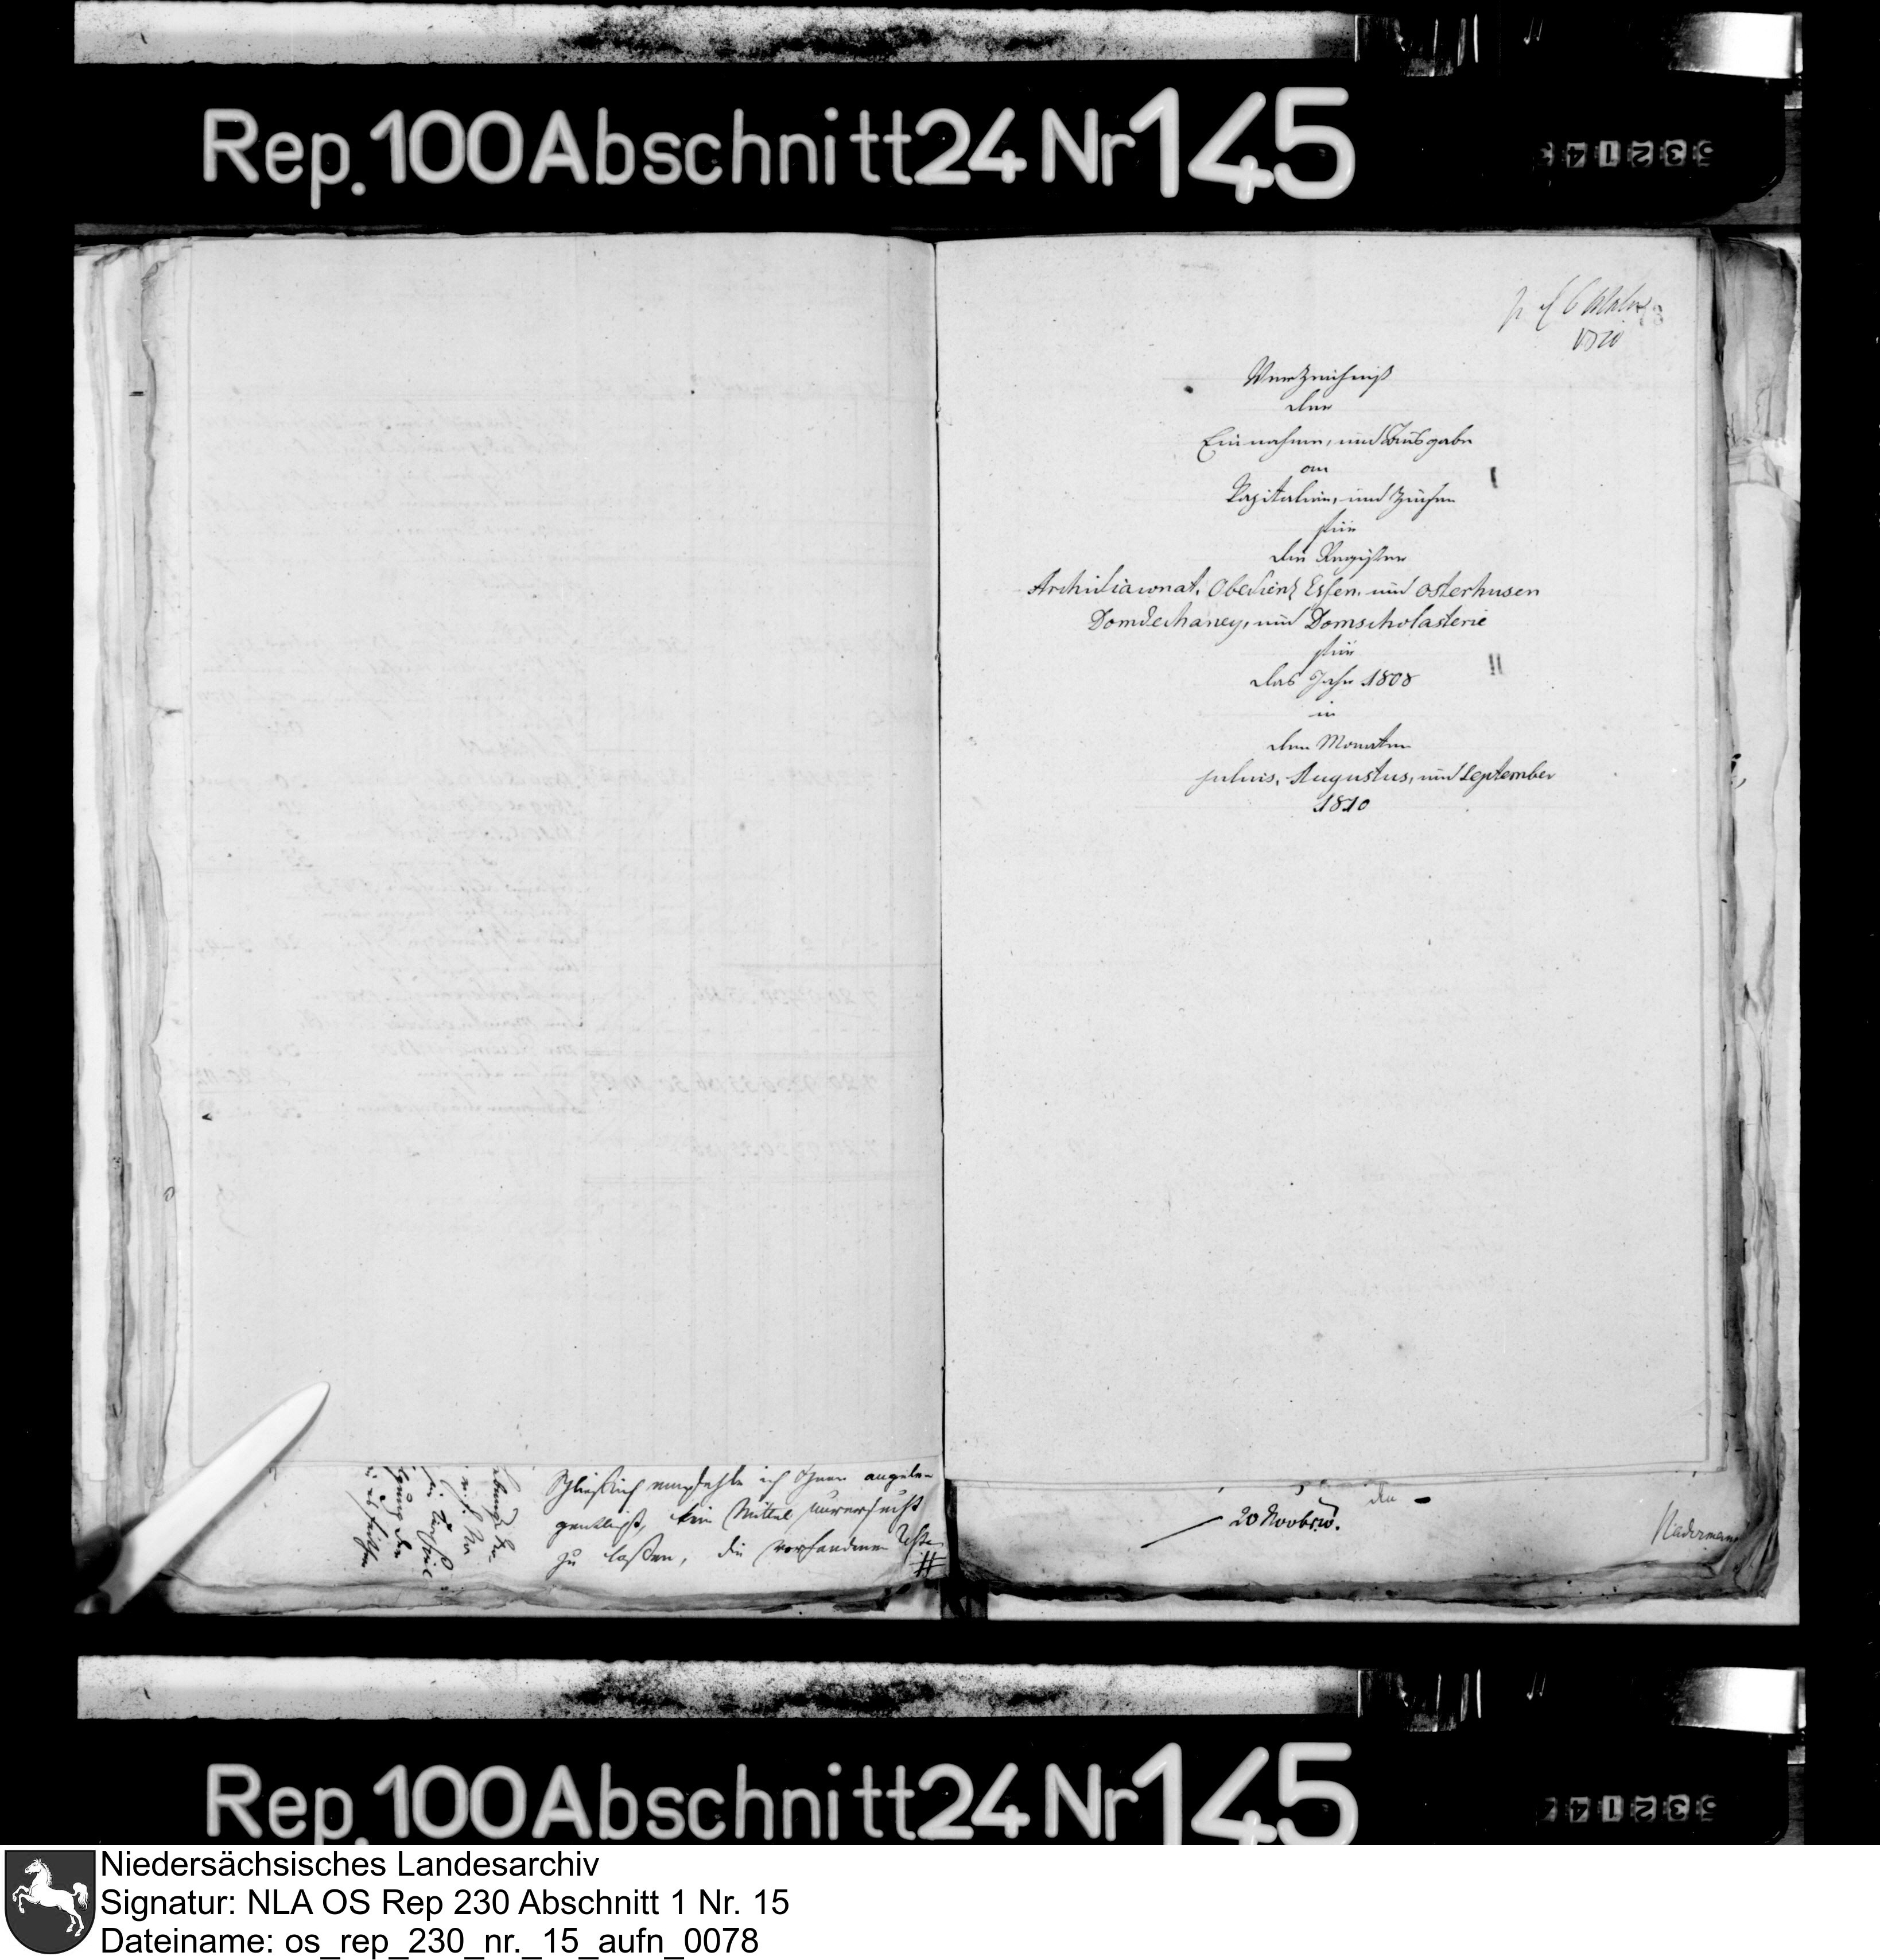 Rep. 100 Abschnitt 24 Nr 145
1810
Verzeichniß
der
Einnahme, und Ausgabe
an
Kapitalien, und Zinsen
für
die Register
Archidiaconat, Obedienz Essen, und Osterhusen
Domdechaney, und Domscholasterie
für
das Jahr 1808
in
den Monaten
Julius, Augustus, und September
1810
Schließlich empfehle ich Ihnen angele-
gentlichst, kein Mittel unversucht
zu laßen, die vorhandenen Reste
#
den
20 Novbr.
Nädermann
Rep. 100 Abschnitt 24 Nr 145
Niedersächsisches Landesarchiv
Signatur: NLA OS Rep 230 Abschnitt 1 Nr. 15
Dateiname: os_rep_230_nr._15_aufn_0078